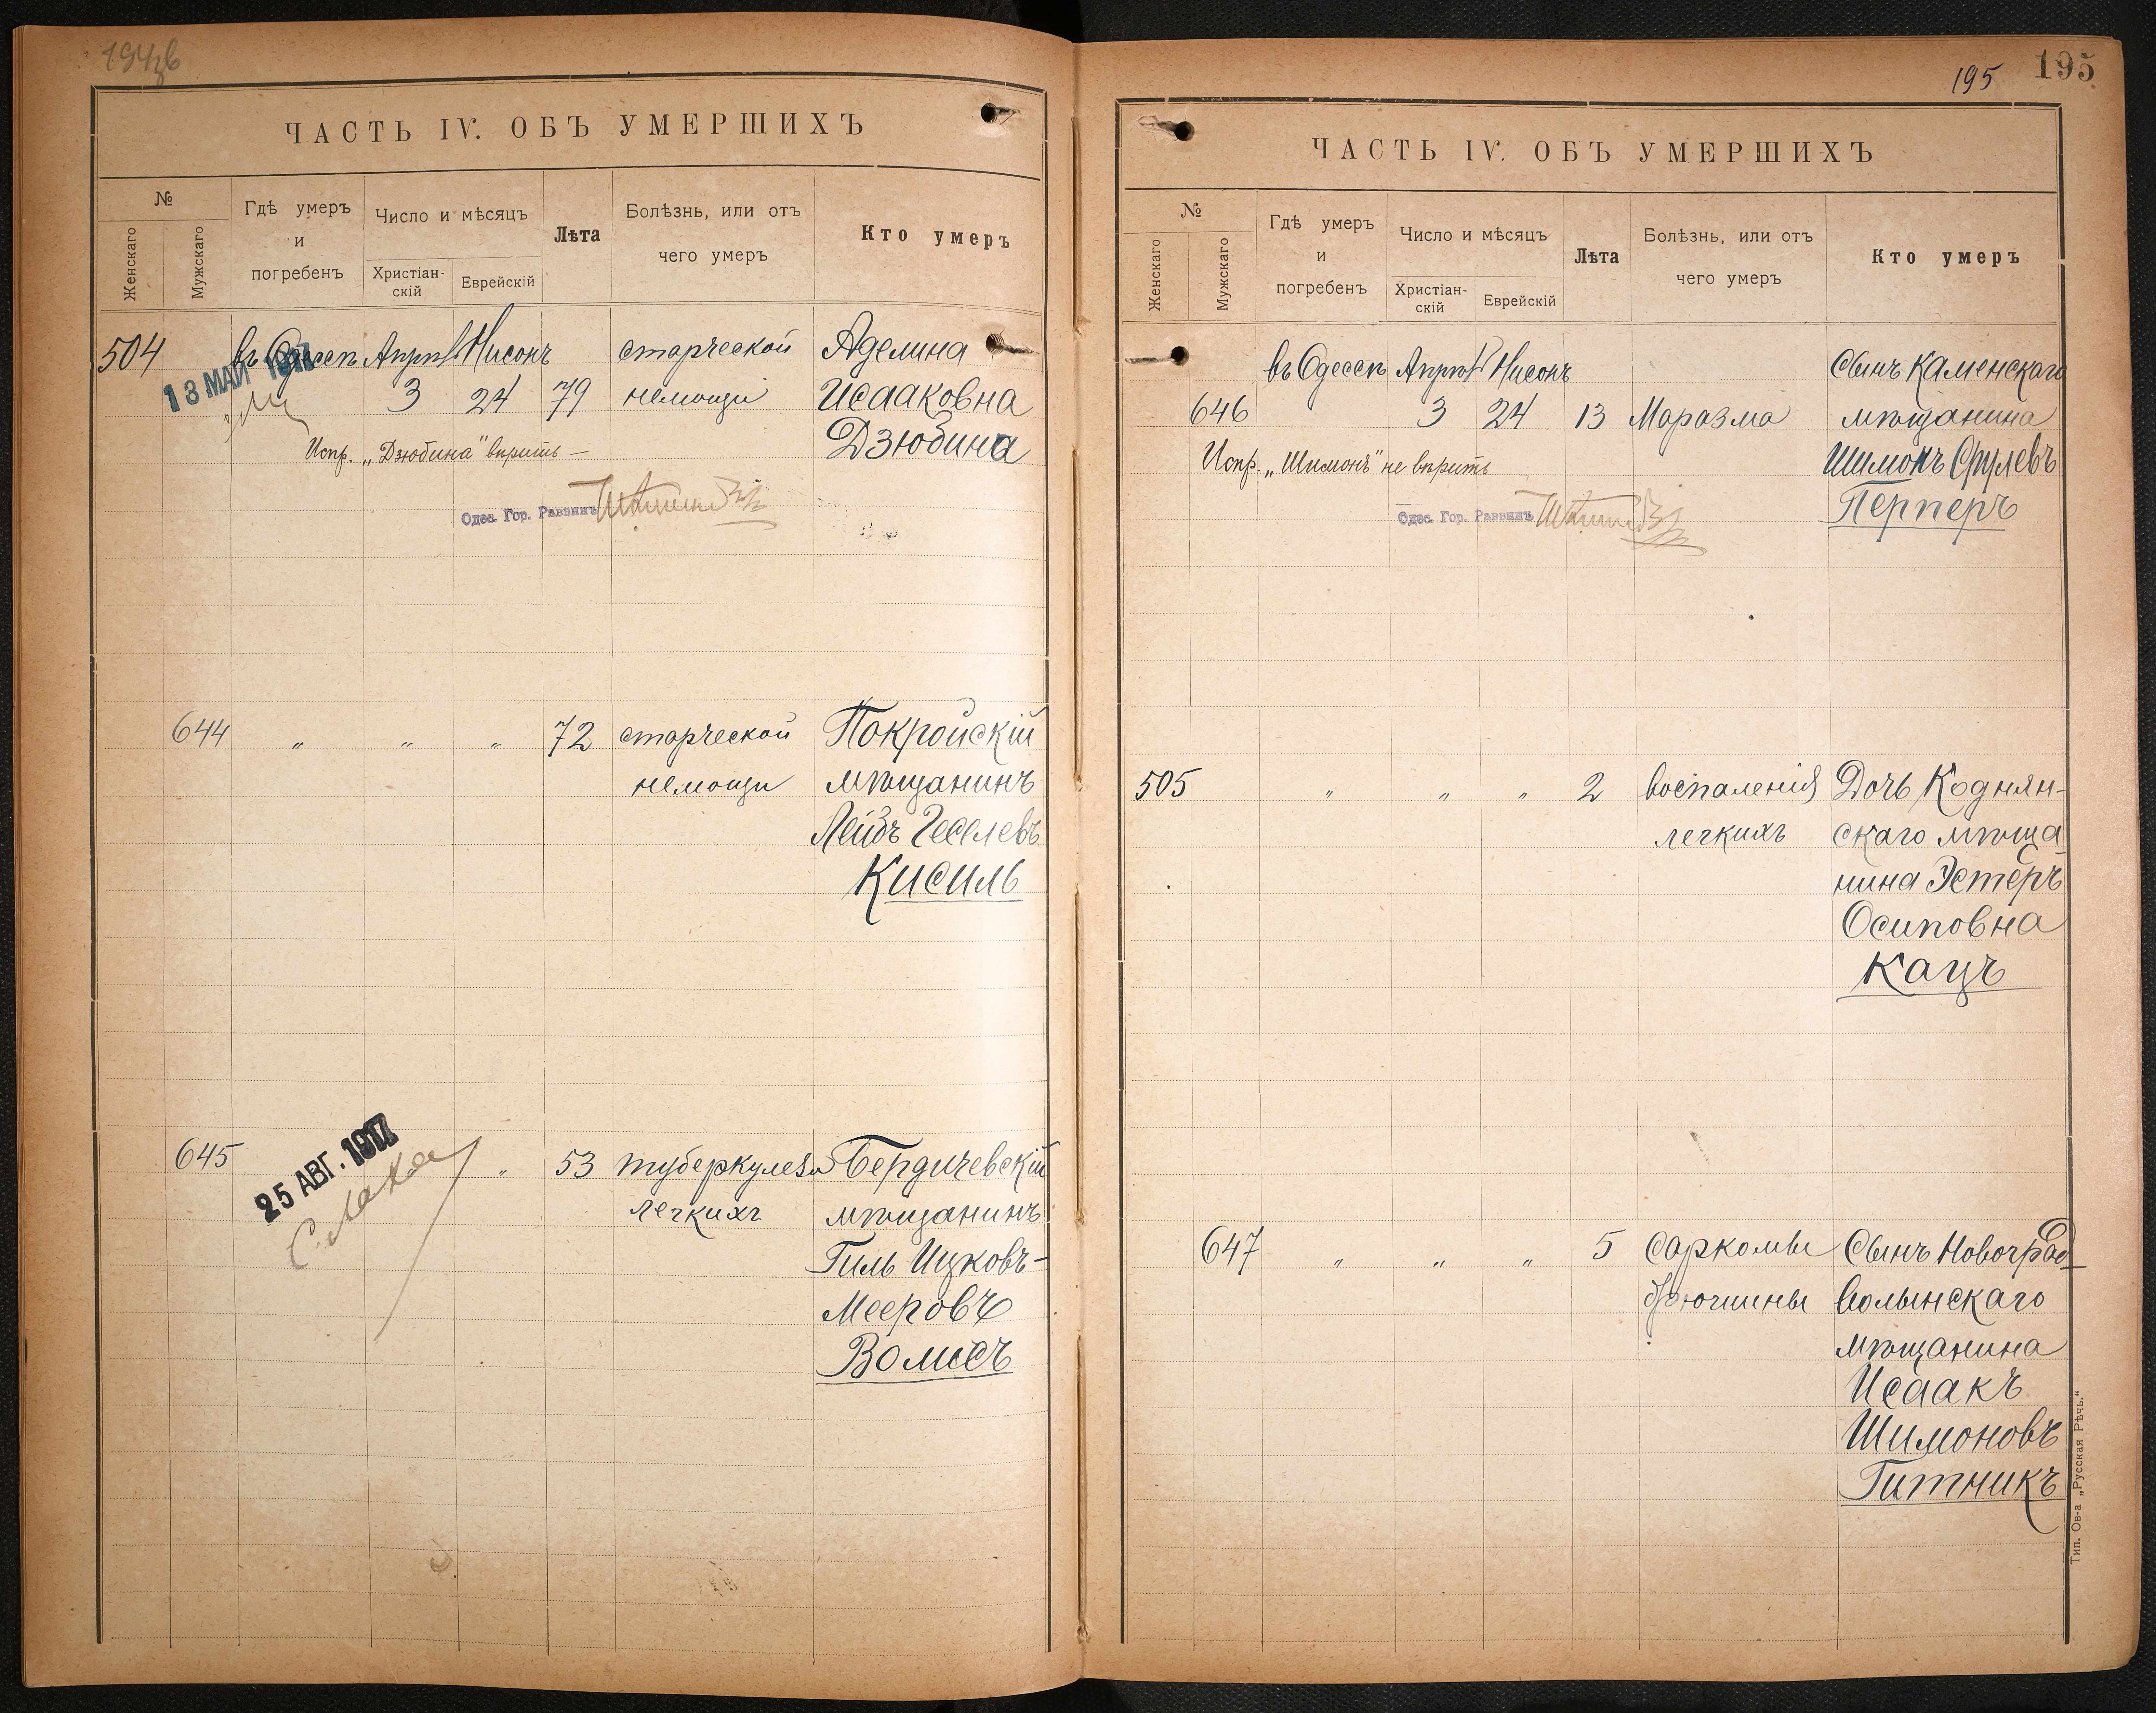 ЧАСТЬ IV. ОБЪ УМЕРШИХЪ
№
Женскаго
Мужскаго
Гдѣ умеръ
и
погребенъ
Число и мѣсяцъ
Христіан-
скій
Еврейскій
Лѣта
Болѣзнь, или отъ
чего умеръ
Кто умеръ
504 въ Одессѣ Апрѣл Нисонъ старческой Аделина
13 МАЙ 1917
3 24 79 немощи Исааковна
Дзюбина
Испр. „Дзюбина" вѣрить —
Одес. Гор. Раввинъ
644 " " " 72 старческой Покройскій
немощи мѣщанинъ
Лейбъ Геселевъ
Кисиль
645 " " 53 туберкулеза Бердичевскій
25 АВГ. 1917
легкихъ мѣщанинъ
Гиль Ицковъ-
Мееровъ
195 195
ЧАСТЬ IV. ОБЪ УМЕРШИХЪ
№
Женскаго
Мужскаго
Гдѣ умеръ
и
погребенъ
Число и мѣсяцъ
Христіан-
скій
Еврейскій
Лѣта
Болѣзнь, или отъ
чего умеръ
Кто умеръ
въ Одессѣ Апрѣл Нисонъ Сынъ Каменскаго
646 3 24 13 Маразма мѣщанина
Шимонъ Срулевъ
Испр. „Шимонъ" не вѣрить
Перперъ
Одес. Гор. Раввинъ
505 " " " 2 воспаленія Дочь Коднян-
легкихъ скаго мѣща
нина Эстеръ
Осиповна
Кацъ
647 " " " 5 Саркомы Сынъ Новоград
брюшины Волынскаго
мѣщанина
Исаакъ
Шимоновъ
Гитникъ
Тип. Ов-а „Русская Рѣчь."